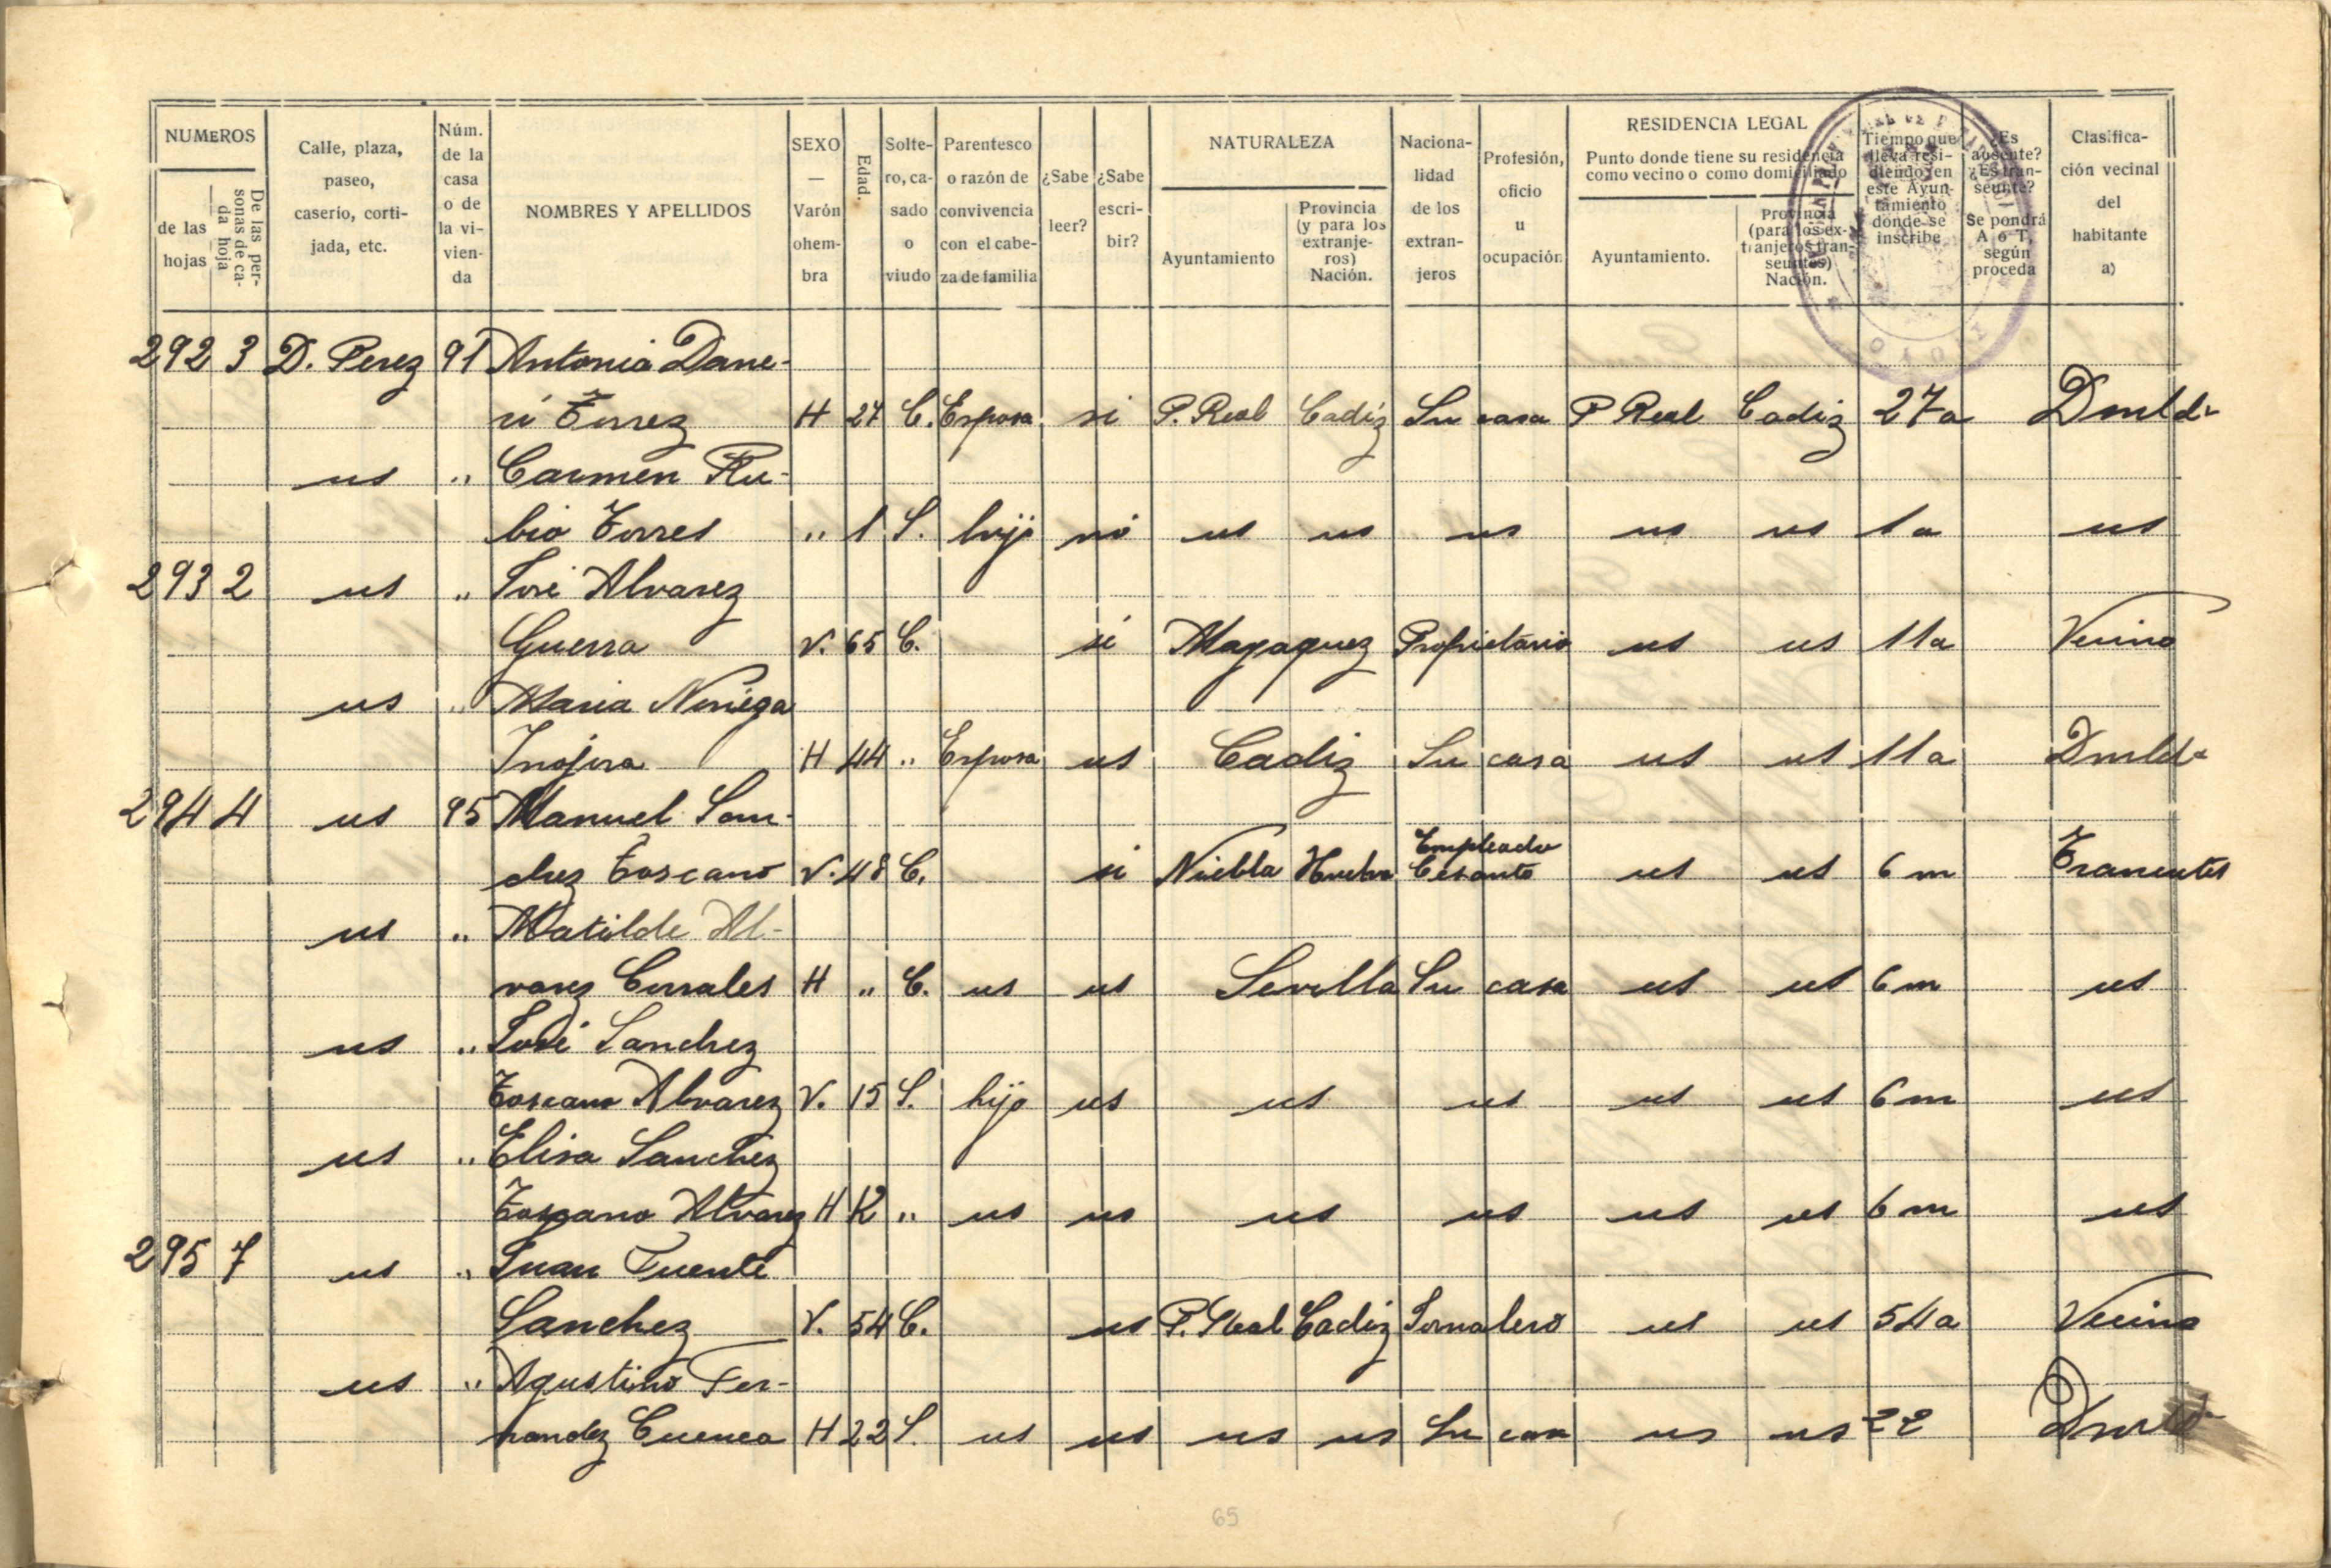 NUMEROS
de las hojas
De las personas de cada hoja
Calle, plaza, paseo, caserío, cortijada, etc.
Núm. de la casa o de la vivienda
NOMBRES Y APELLIDOS
SEXO — Varón o hembra
Edad.
Soltero, casado o viudo
Parentesco o razón de convivencia con el cabeza de familia
¿Sabe leer?
¿Sabe escribir?
NATURALEZA
Ayuntamiento
Provincia (y para los extranjeros) Nación.
Nacionalidad de los extranjeros
Profesión, oficio u ocupación
RESIDENCIA LEGAL
Punto donde tiene su residencia como vecino o como domiciliado
Ayuntamiento.
Provincia (para los extranjeros transeuntes) Nación.
Tiempo que lleva residiendo en este Ayuntamiento donde se inscribe
¿Es ausente? ¿Es transeunte? Se pondrá A o T, según proceda
Clasificación vecinal del habitante a)
292 3 D. Perez 91 Antonia Dane-
ri Torrez H 27 C. Esposa si P. Real Cadiz Su casa P Real Cadiz 27 a Dmld.
us " Carmen Ru-
bio Torres " 1 S. hijo no us us us us us 1 a us
293 2 us " José Alvarez
Guerra V. 65 C. si Mayaguez Propietario us us 11 a Vecino
us " Maria Noriega
Inojosa H 44 " Esposa us Cadiz Su casa us us 11 a Dmld.
294 4 us 95 Manuel San-
chez Toscano V. 48 C. si Niebla Huelva Empleado Cesante us us 6 m Traneutes
us " Matilde Al-
varez Corrales H " C. us us Sevilla Su casa us us 6 m us
us " José Sanchez
Toscano Alvarez V. 15 S. hijo us us us us us 6 m us
us " Elisa Sanchez
Toscano Alvarez H 12 " us us us us us us 6 m us
295 7 us " Juan Fuente
Sanchez V. 54 C. us P. Real Cadiz Jornalero us us 54 a Vecino
us " Agustino Fer-
nandez Cuenca H 22 S. us us us us Su casa us us 22 Dmld
65